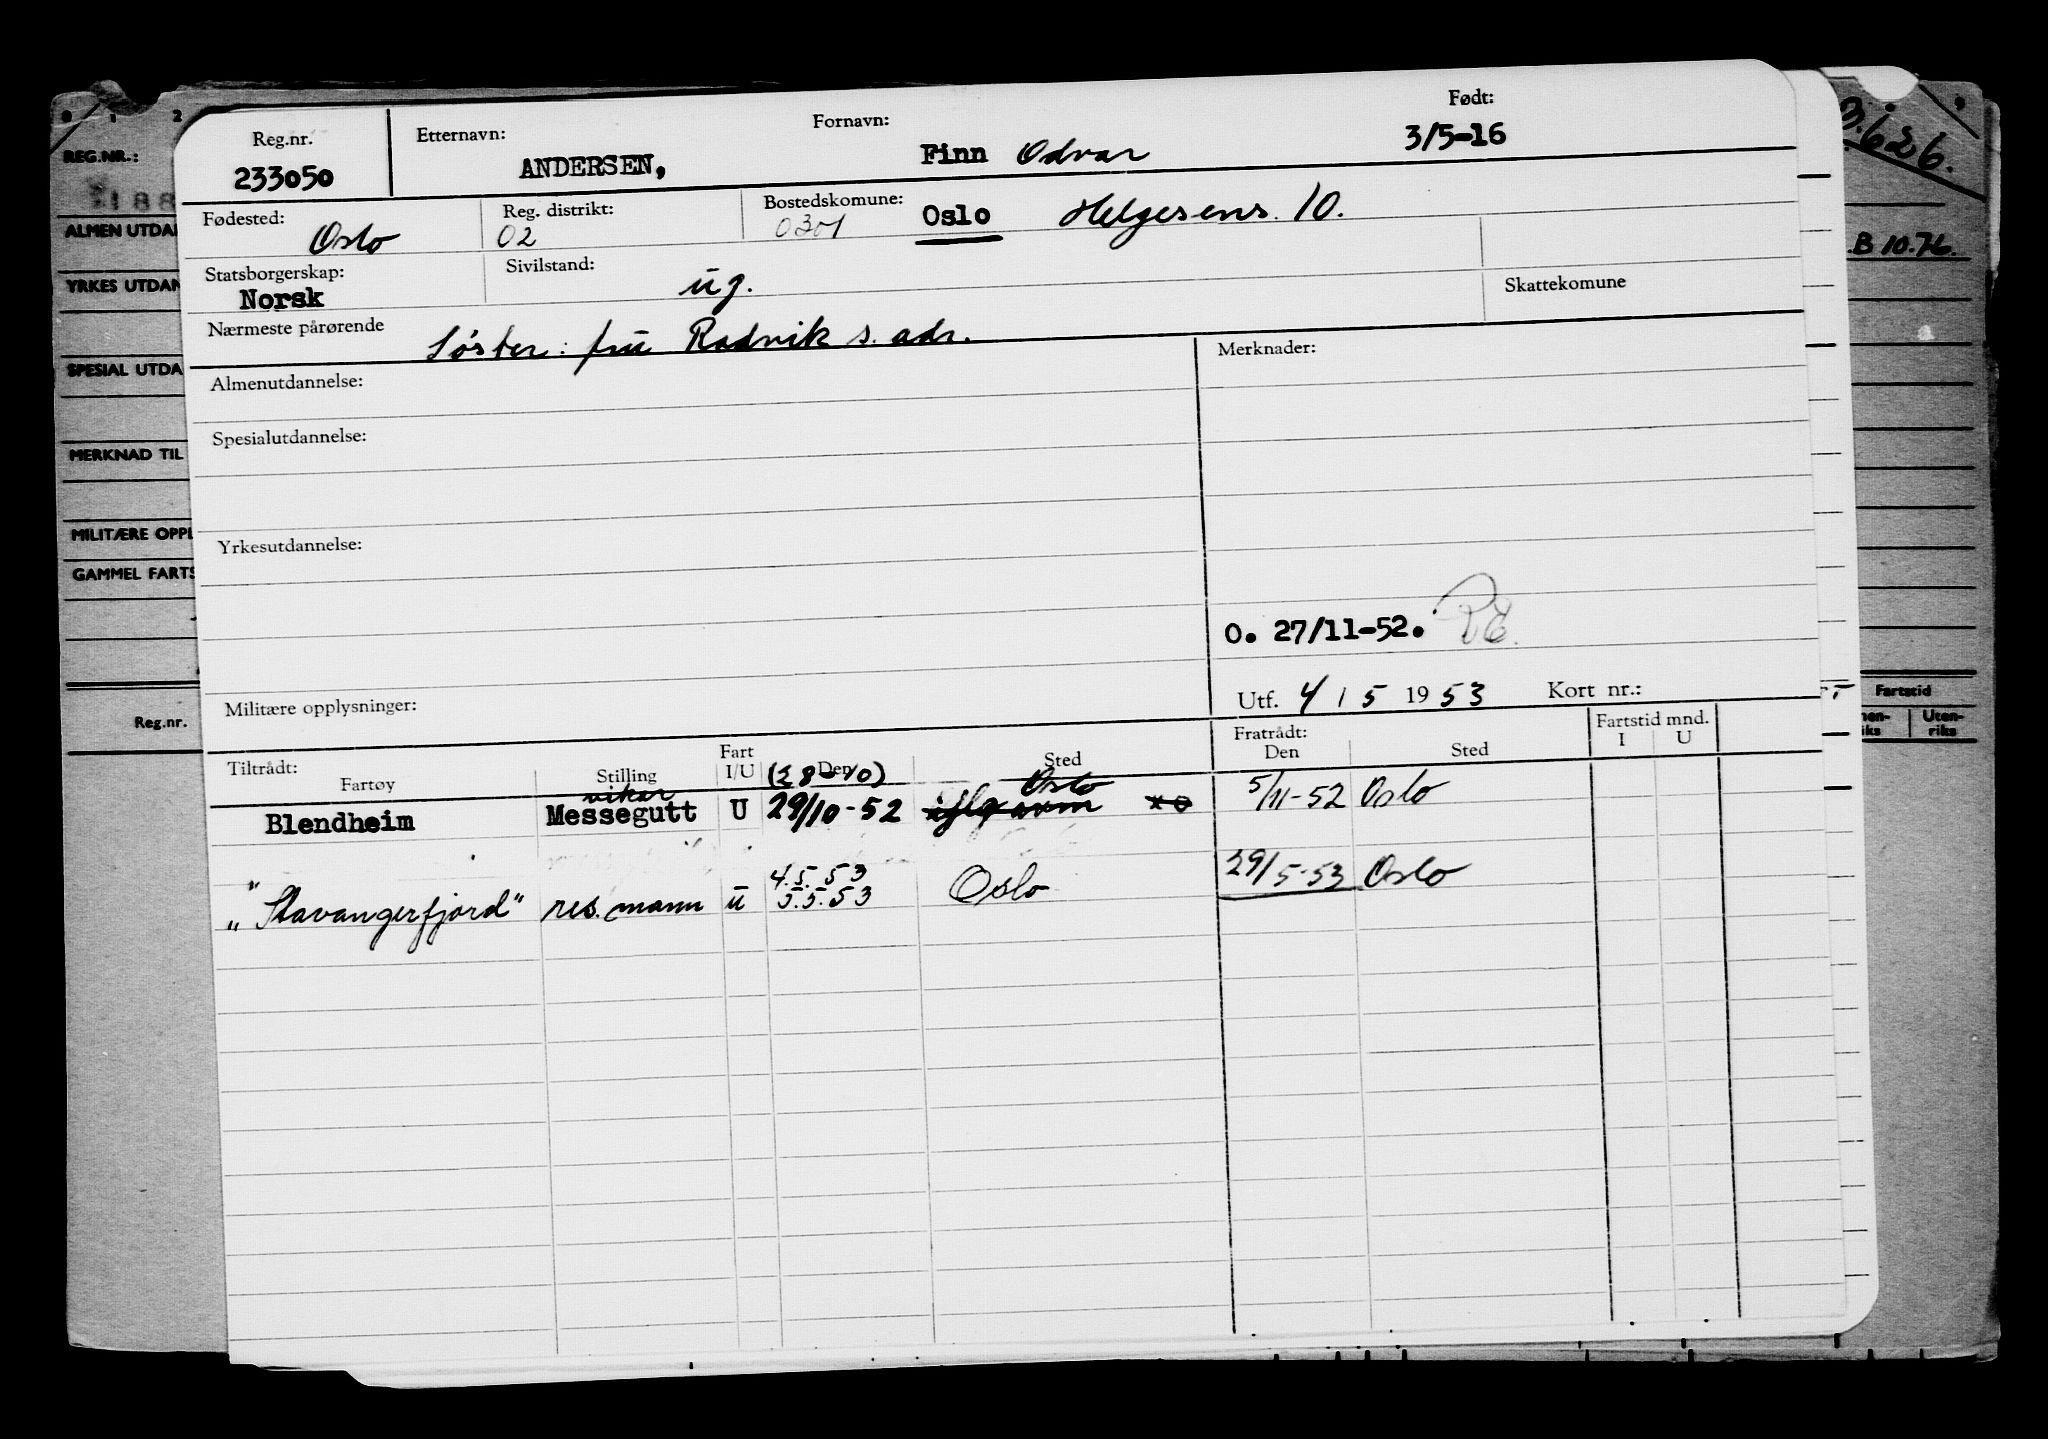 0 1 2 9
REG.NR.: 188
3.626.
ALMEN UTDA
B 10.76.
YRKES UTDAN
SPESIAL UTDA
MERKNAD TIL
MILITÆRE OPPL
GAMMEL FARTS
Reg.nr.
Fartstid
Uten-
riks
Reg.nr. Etternavn: Fornavn: Født:
233050 ANDERSEN, Finn Odvar 3/5-16
Fødested: Reg. distrikt: Bostedskomune:
Oslo 02 0301 Oslo Helgesens. 10.
Statsborgerskap: Sivilstand: Skattekomune
Norsk ug.
Nærmeste pårørende Søster: fru Radvik s. adr.
Almenutdannelse: Merknader:
Spesialutdannelse:
Yrkesutdannelse:
O. 27/11-52.
Militære opplysninger: Utf. 4 / 5 1953 Kort nr.:
Tiltrådt: Fratrådt: Fartstid mnd.
Fartøy Stilling Fart I/U Den Sted Den Sted I U
(28-10) Oslo
vikar
Blendheim Messegutt U 29/10-52 5/11-52 Oslo
4.5.53
"Stavangerfjord" res. mann u 5.5.53 Oslo 29/5-53 Oslo